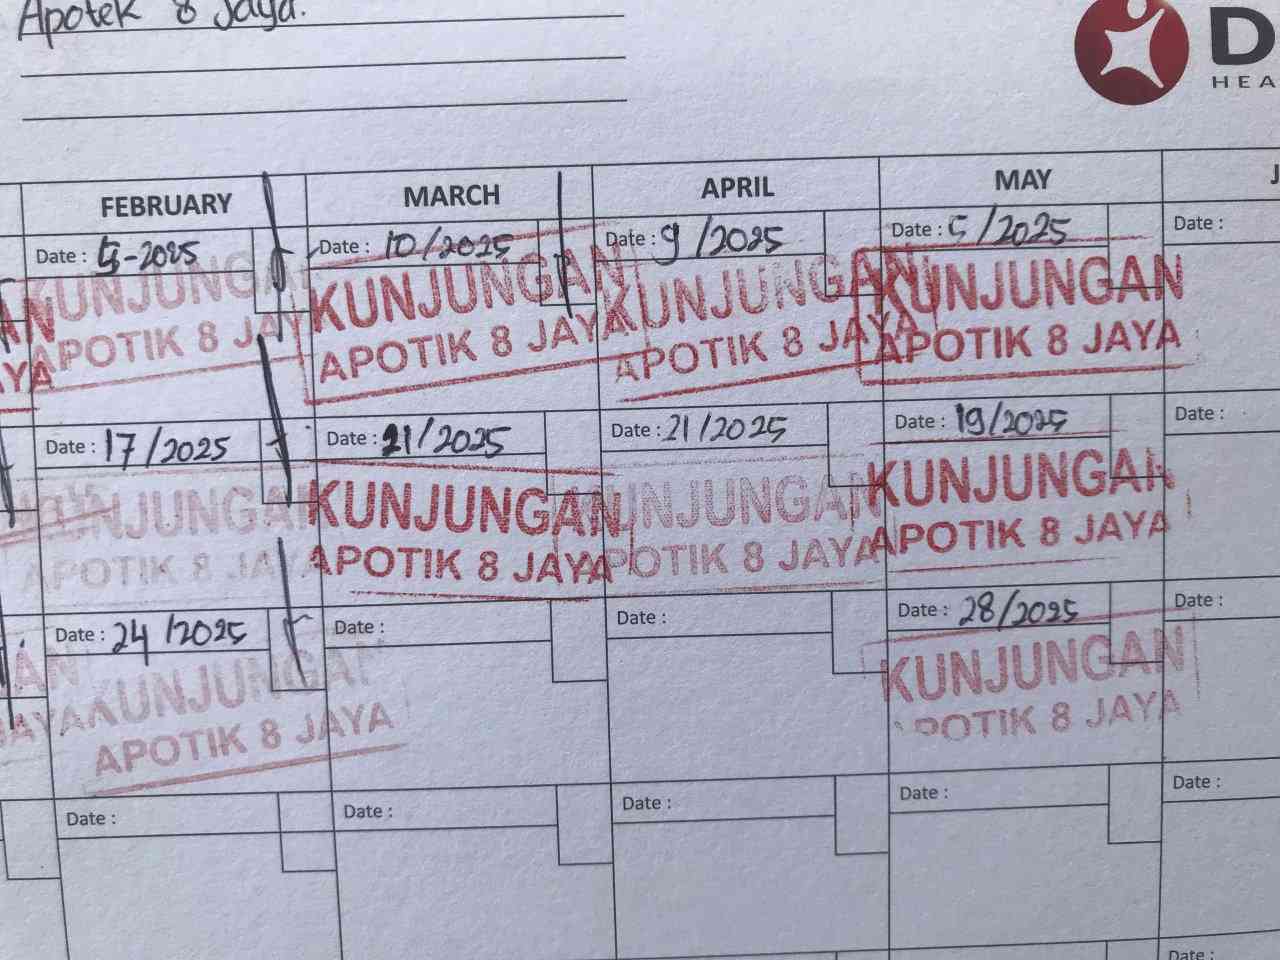 Apotek 8 Jaya.
D
HEA
FEBRUARY MARCH APRIL MAY J
Date : 5-2025 Date : 10/2025 Date : 9/2025 Date : 5/2025 Date :
KUNJUNGAN KUNJUNGAN KUNJUNGAN KUNJUNGAN
YA APOTIK 8 JAYA APOTIK 8 JAYA APOTIK 8 JAYA APOTIK 8 JAYA
Date : 17/2025 Date : 21/2025 Date : 21/2025 Date : 19/2025 Date :
UNJUNGAN KUNJUNGAN UNJUNGAN KUNJUNGAN
APOTIK 8 JAYA APOTIK 8 JAYA POTIK 8 JAYA APOTIK 8 JAYA
Date : 24/2025 Date : Date : Date : 28/2025 Date :
AN KUNJUNGAN KUNJUNGAN
JAYA APOTIK 8 JAYA POTIK 8 JAYA
Date : Date : Date : Date : Date :
Date :